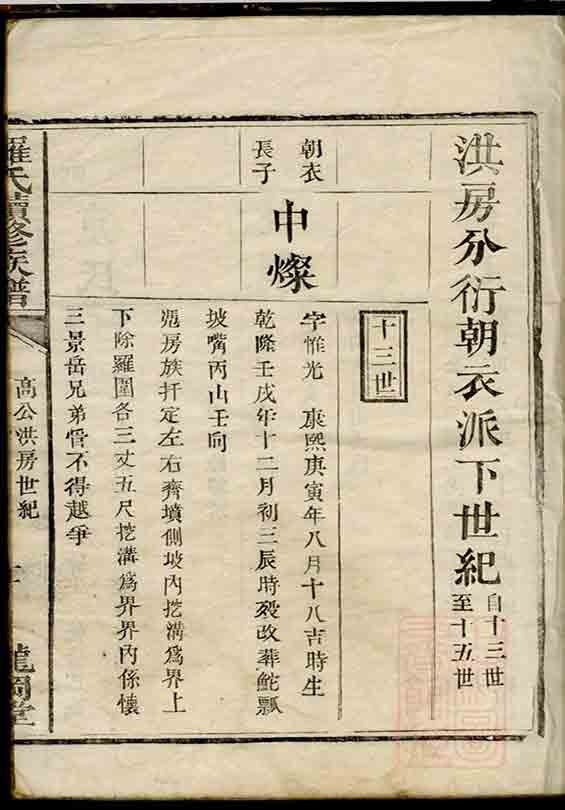 洪房分衍朝衣派下世紀
自十三世
至十五世
十三世
朝衣
長子
中燦
字惟光 康熙庚寅年八月十八吉時生
乾隆壬戌年十二月初三辰時歿改葬鮀瓢
坡嘴丙山壬向
憑房族扦定左右齊墳側坡內挖溝為界上
下除羅圍各三丈五尺挖溝為界界內係懷
三景岳兄弟管不得越爭
羅氏續修族譜
高公洪房世紀
龍岡堂